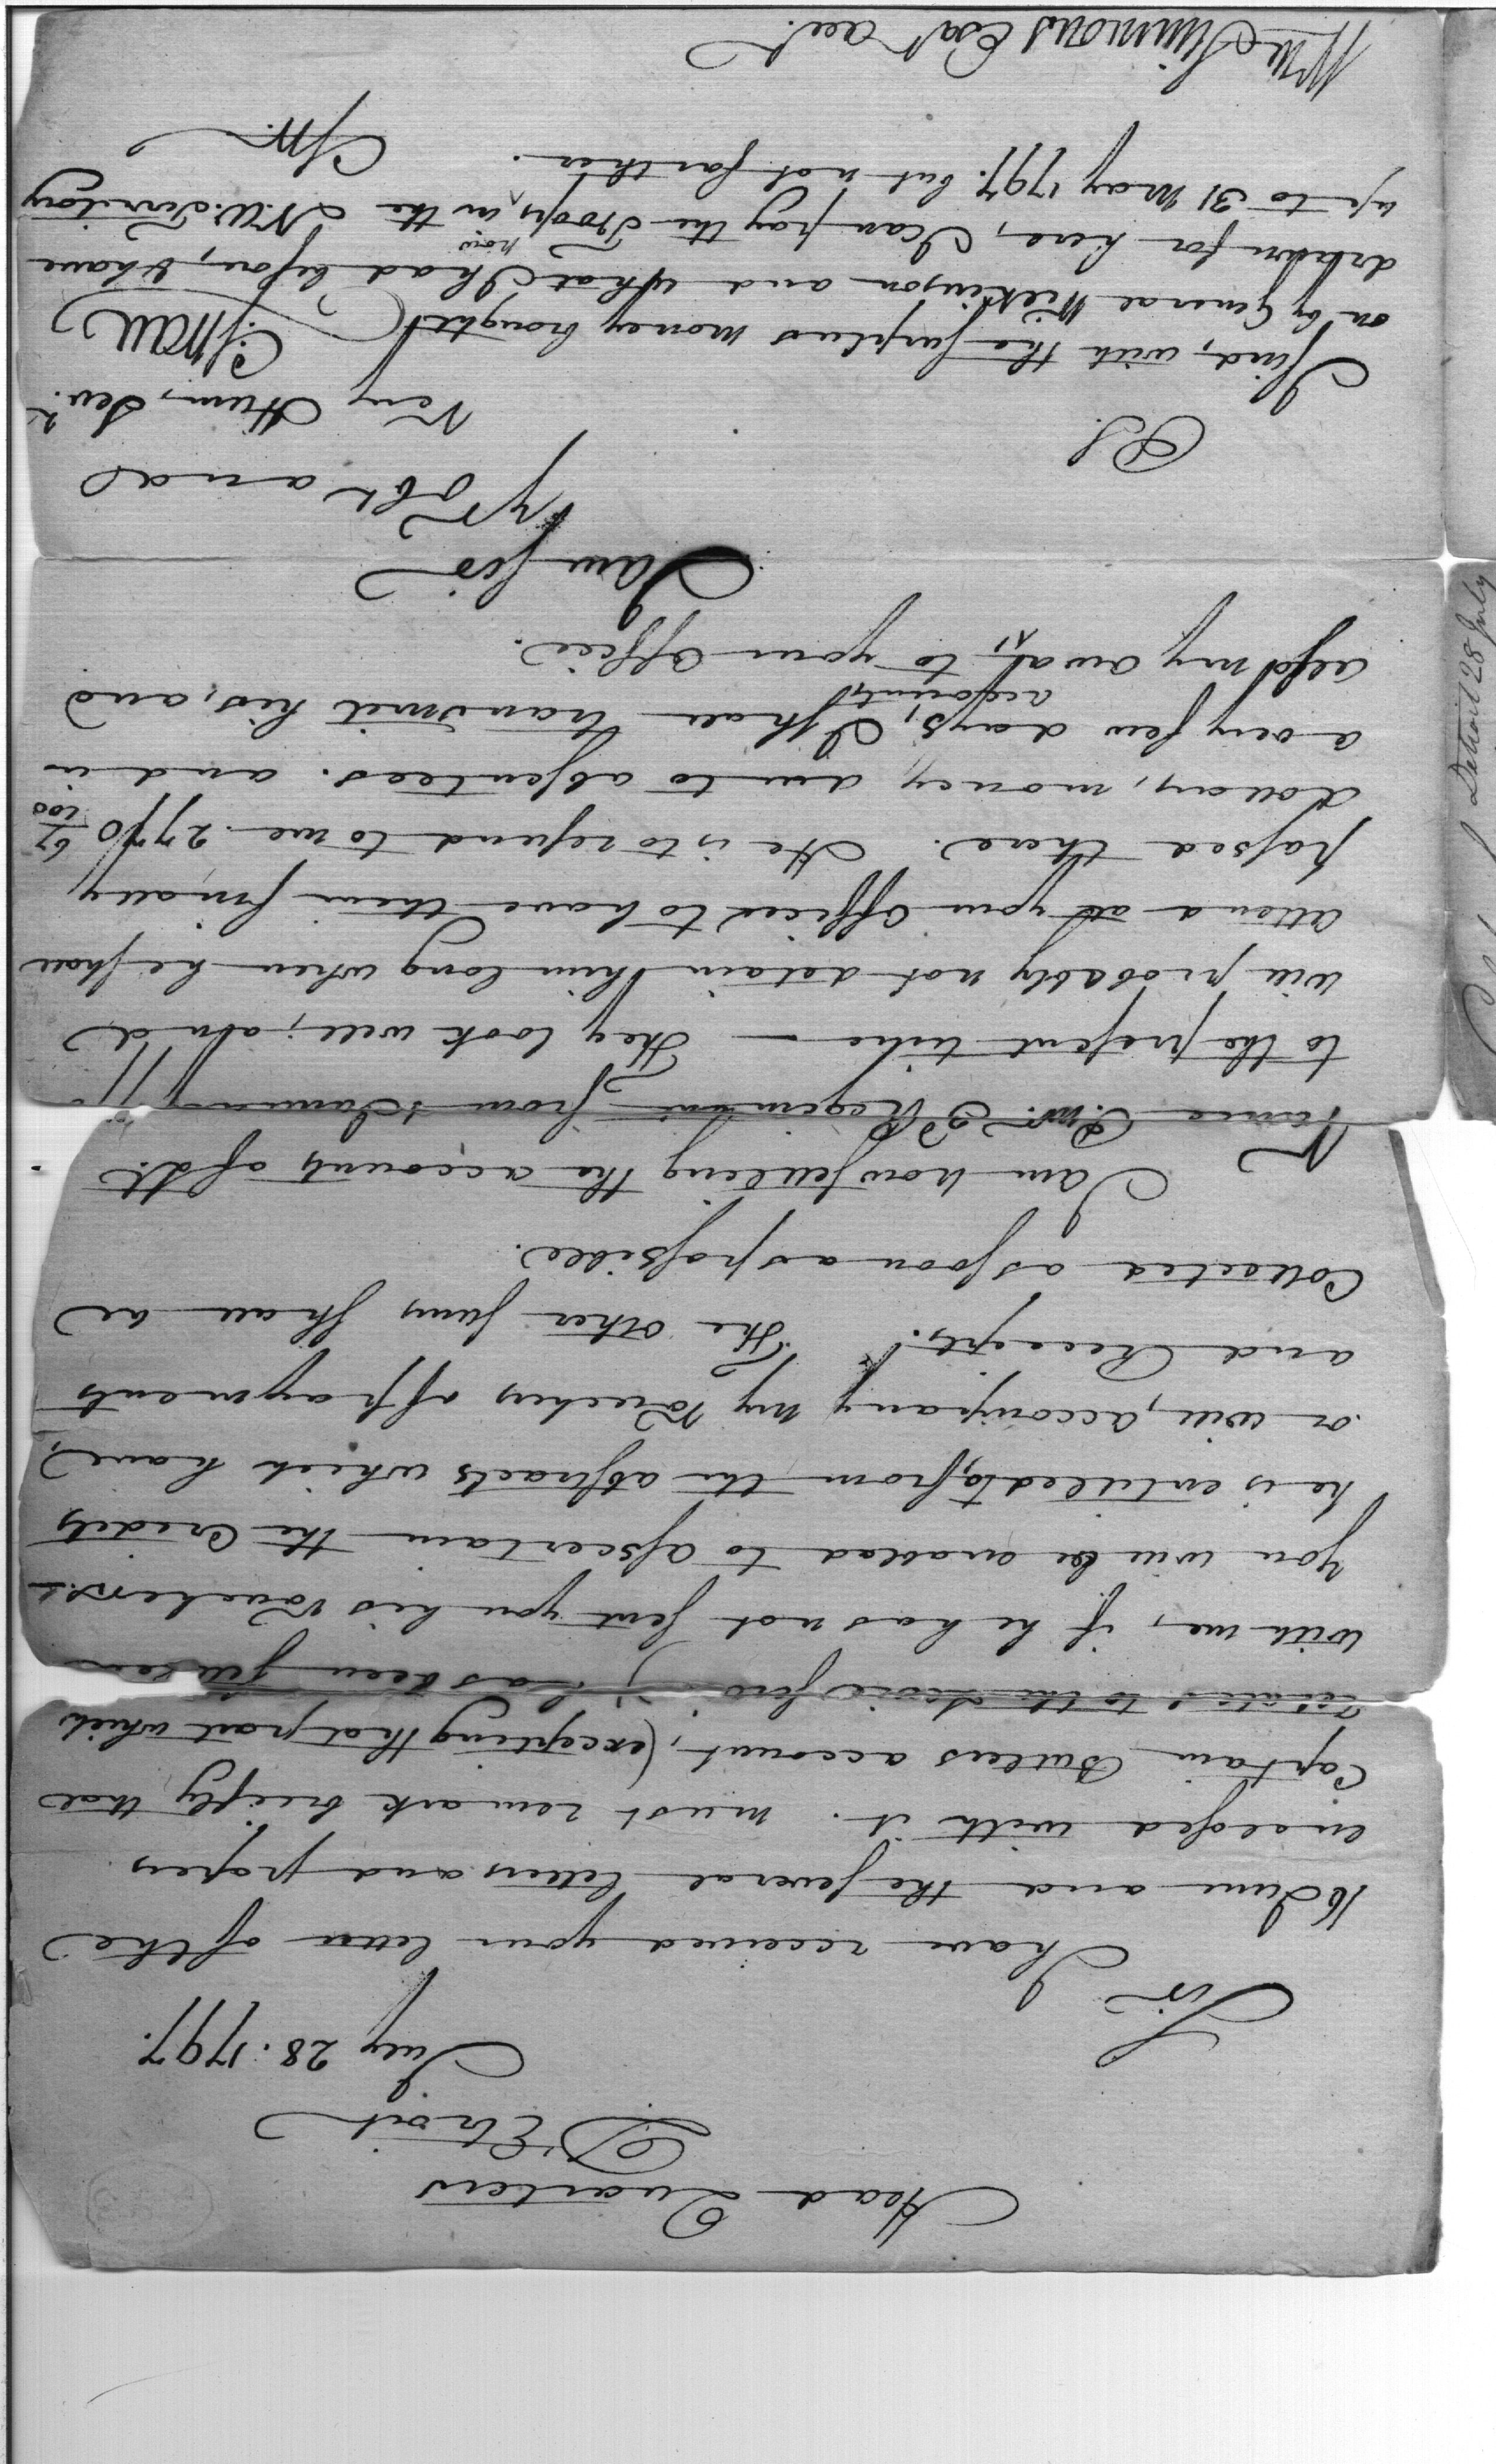 Head Quarters
D'Etroit
July 28. 1797.
Sir
I have received your letter of the
16 June and the several letters and papers
inclosed with it. must remark briefly that
Captain Butlers account, (excepting that part which
to the has been settled
with me, if he has not sent you his vouchers
you will be enabled to ascertain the Credits
he is entitled to, from the abstracts which have,
or will, accompany my Vouchers of payments
and Receipts. The other sums shall be
Collected as soon as possible.
I am now settling the accounts of Lt
Vance P.Mr. 3d Regiment from January
to the present time — They look well; and
will probably not detain him long when he shall
attend at your office to have them finally
passed there. He is to refund to me 2770 67/100
dollars, money due to absentees. and in
a very few days, I shall transmit his, and
also my own accounts, to your office.
I am sir
yr obt and
Very Hum, Servt
C Swan
P.S.
I find, with the surplus money brought
on by General Wilkinson and what I had before, & have
drawn for here, I can pay the Troops now in the N.W. Territory
up to 31 May 1797. but not farther.
C S
Wm Simmons Esqr acct
Detroit 28 July